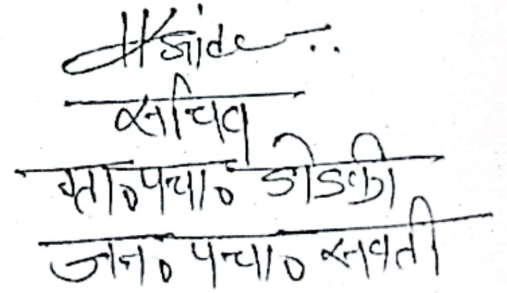 सचिव
ग्रा० पंचा० डोडकी
जन० पंचा० सक्ती